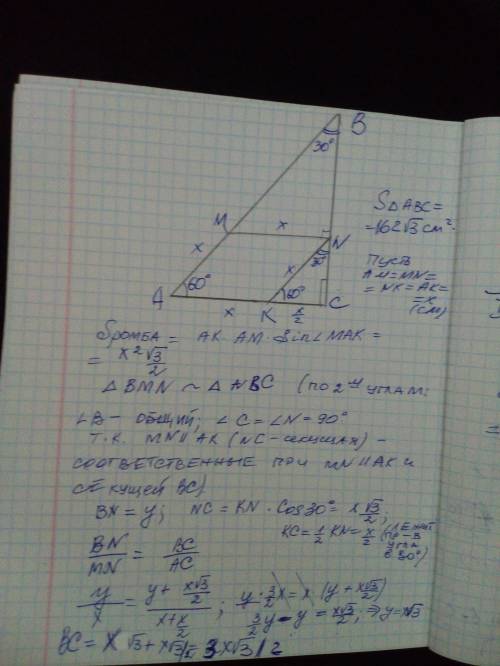 B
30°
S△ABC =
= 162√3 см².
M
x
N
30°
x
x
Пусть
AM = MN =
= NK = AK =
= x
(см)
A
60°
60°
x
K
x/2
C
Sромба = AK · AM · Sin∠MAK =
= x²√3/2
△BMN ~ △ABC (по 2-м углам:
∠B – общий; ∠C = ∠N = 90°
т.к. MN || AK (NC – секущая) –
соответственные при MN || AK и
секущей BC)
BN = y; NC = KN · Cos30° = x√3/2;
KC = 1/2 KN = x/2 (лежит
пр-в
угла
в 30°)
BN/MN = BC/AC
y/x = (y + x√3/2)/(x + x/2); y · 3/2 x = x (y + x√3/2)
3/2 y – y = x√3/2; ⇒ y = x√3
BC = x√3 + x√3/2 = 3x√3/2